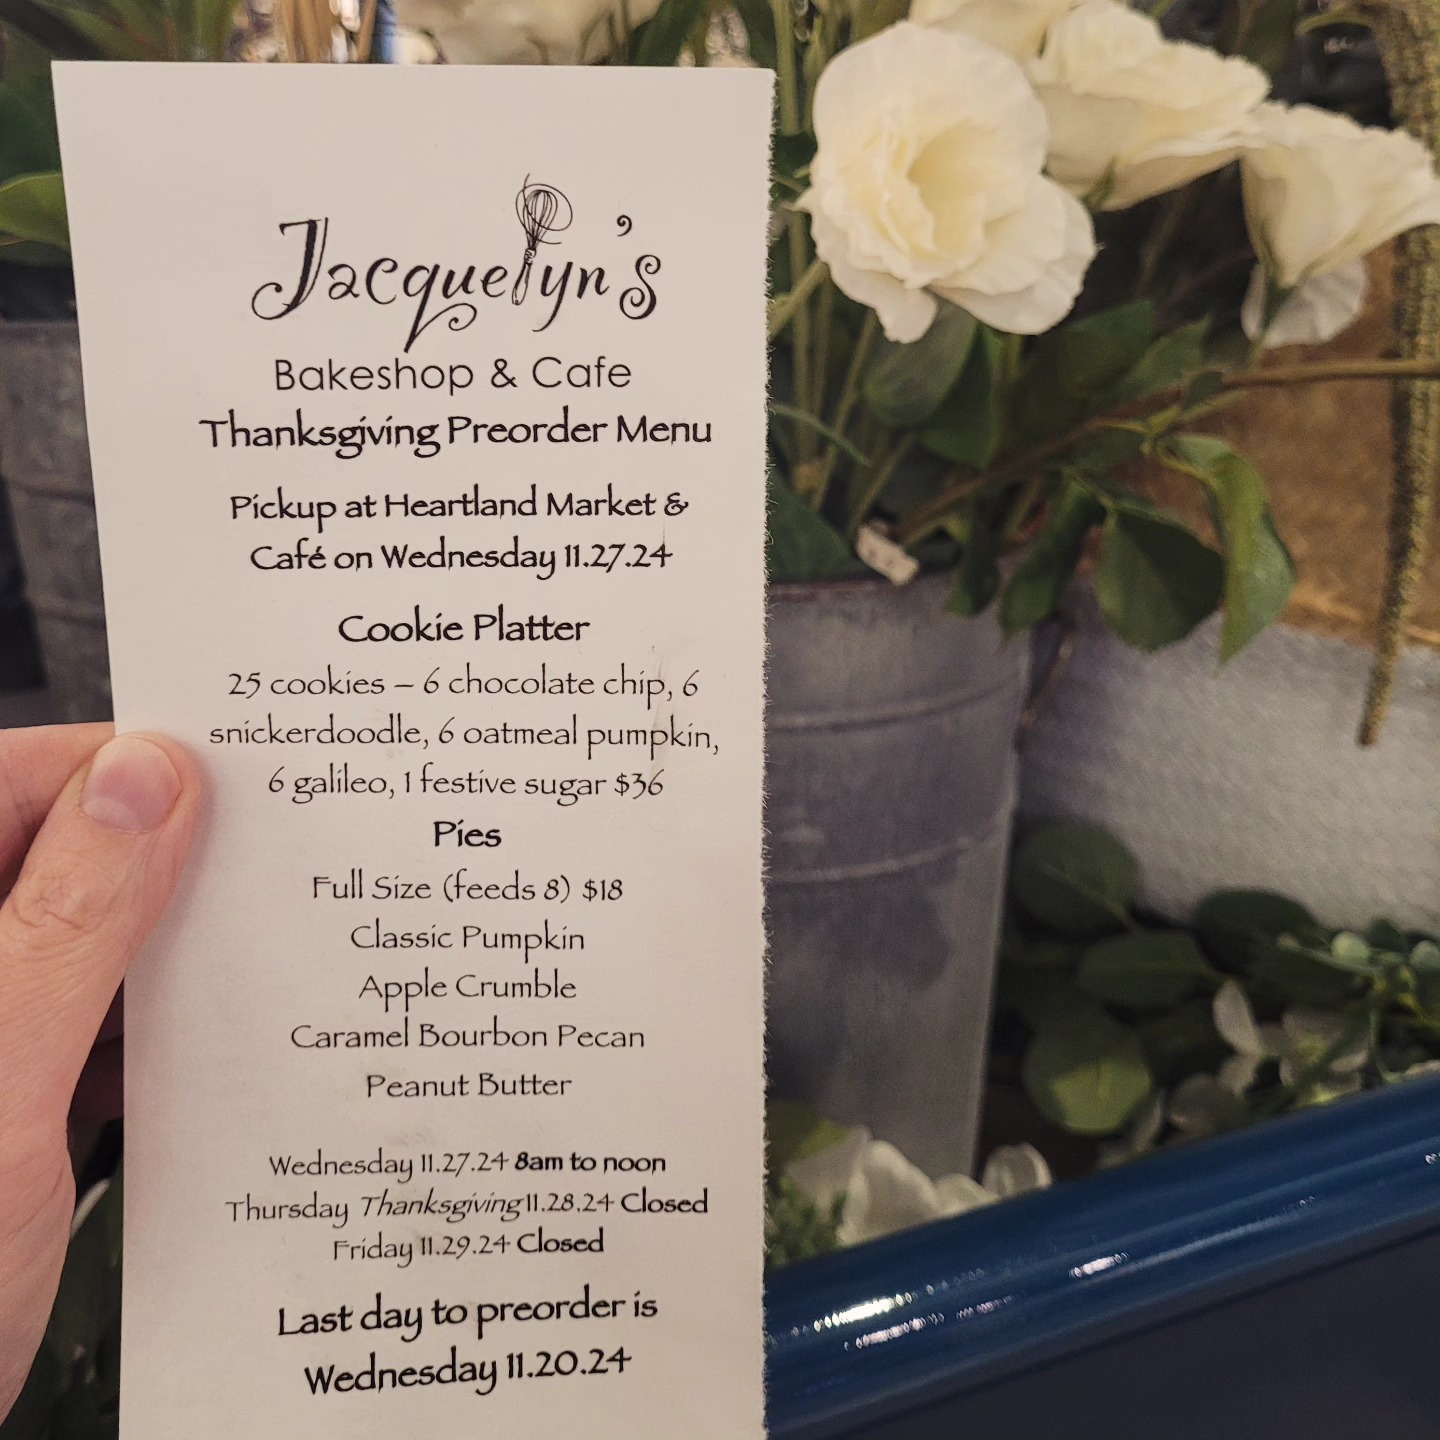 Jacquelyn's
Bakeshop & Cafe
Thanksgiving Preorder Menu
Pickup at Heartland Market &
Café on Wednesday 11.27.24
Cookie Platter
25 cookies – 6 chocolate chip, 6
snickerdoodle, 6 oatmeal pumpkin,
6 galileo, 1 festive sugar $36
Pies
Full Size (feeds 8) $18
Classic Pumpkin
Apple Crumble
Caramel Bourbon Pecan
Peanut Butter
Wednesday 11.27.24 8am to noon
Thursday Thanksgiving 11.28.24 Closed
Friday 11.29.24 Closed
Last day to preorder is
Wednesday 11.20.24